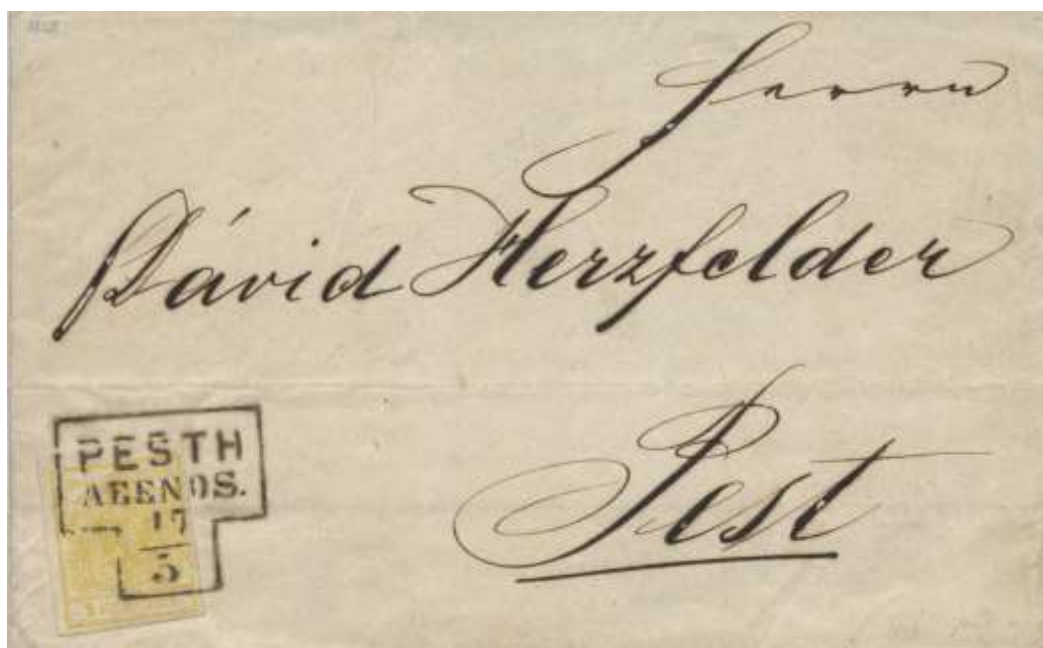 Herrn
Dávid Herzfelder
Pest
PESTH
ABENDS.
17
5